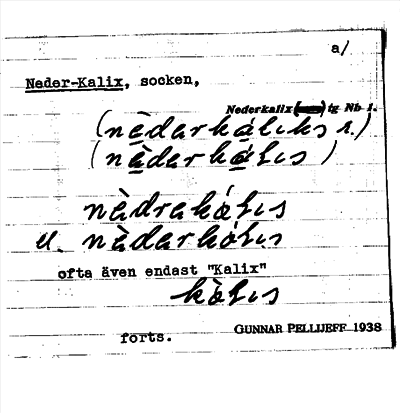 a/
Neder-Kalix, socken,
Nederkalix tg Nb 1.
(nèdarkáliks s.)
(nèdarkálıs)
nèdrakálıs
el. nèdarkálıs
ofta även endast "Kalix"
kàlıs
forts.
GUNNAR PELLIJEFF 1938